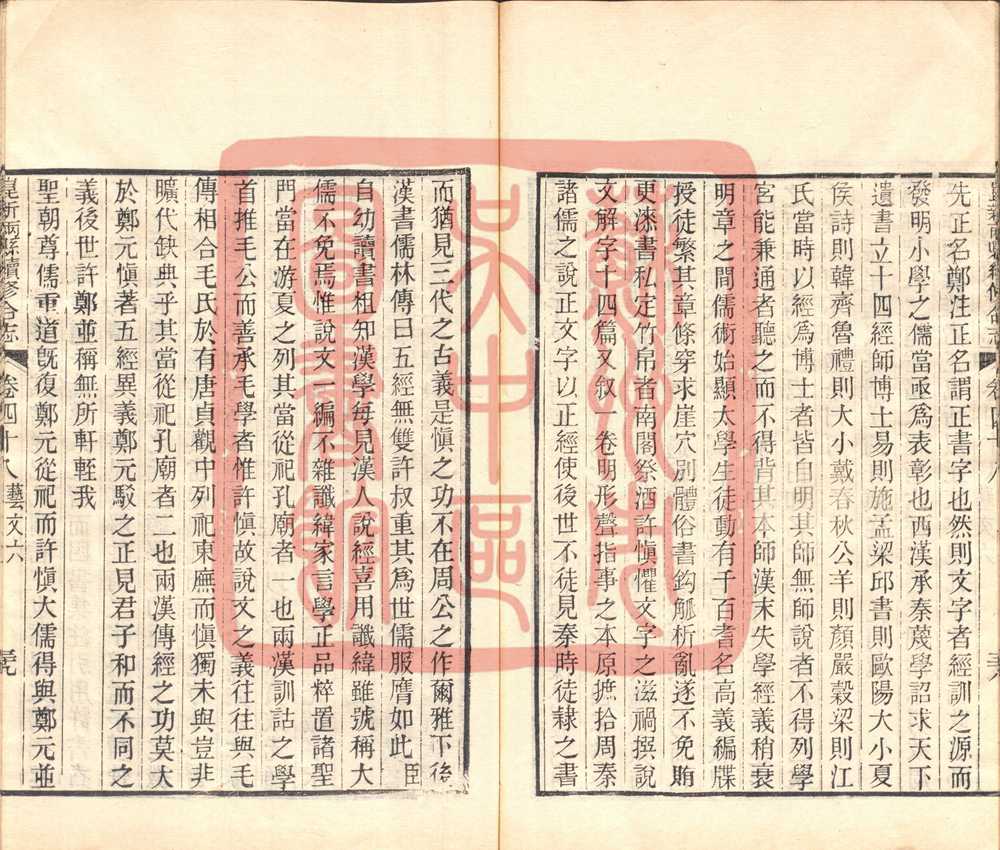 先正名鄭注正名謂正書字也然則文字者經訓之源而
發明小學之儒當亟爲表彰也西漢承秦蔑學詔求天下
遺書立十四經師博士易則施孟梁邱書則歐陽大小夏
侯詩則韓齊魯禮則大小戴春秋公羊則顏嚴穀梁則江
氏當時以經爲博士者皆自明其師無師說者不得列學
宮能兼通者聽之而不得背其本師漢末失學經義稍衰
明章之間儒術始顯太學生徒動有千百耆名高義編牒
授徒繁其章條穿求崖穴別體俗書鈎𨥧析亂遂不免賄
更漆書私定竹帛者南閣祭酒許慎懼文字之滋禍撰說
文解字十四篇又叙一卷明形聲指事之本原摭拾周秦
諸儒之說正文字以正經使後世不徒見秦時徒隸之書
而猶見三代之古義是慎之功不在周公之作爾雅下後
漢書儒林傳曰五經無雙許叔重其爲世儒服膺如此臣
自幼讀書粗知漢學每見漢人說經喜用讖緯雖號稱大
儒不免焉惟說文一編不雜讖緯家言學正品粹置諸聖
門當在游夏之列其當從祀孔廟者一也兩漢訓詁之學
首推毛公而善承毛學者惟許慎故說文之義往往與毛
傳相合毛氏於有唐貞觀中列祀東廡而慎獨未與豈非
曠代缺典乎其當從祀孔廟者二也兩漢傳經之功莫大
於鄭元慎著五經異義鄭元駁之正見君子和而不同之
義後世許鄭並稱無所軒輊我
聖朝尊儒重道旣復鄭元從祀而許慎大儒得與鄭元並
昆新兩縣續修合志 卷四十八 藝文六
蘇州市
吳中區
圖書館